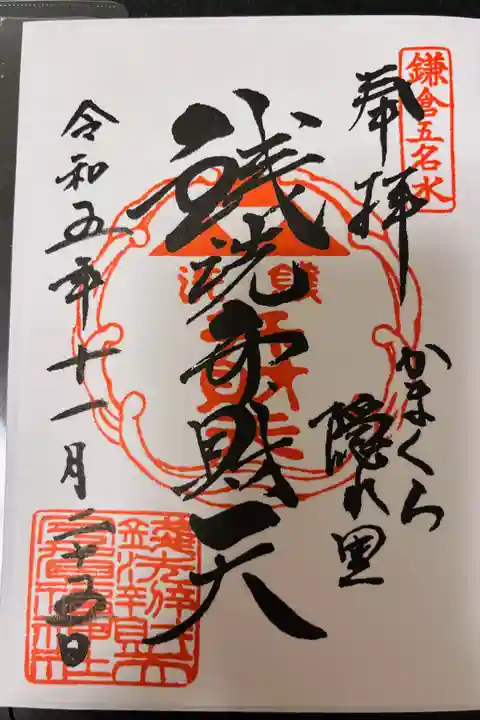 鎌倉五名水
奉拝
かまくら
隠れ里
銭洗弁財天
令和五年十一月二十五日